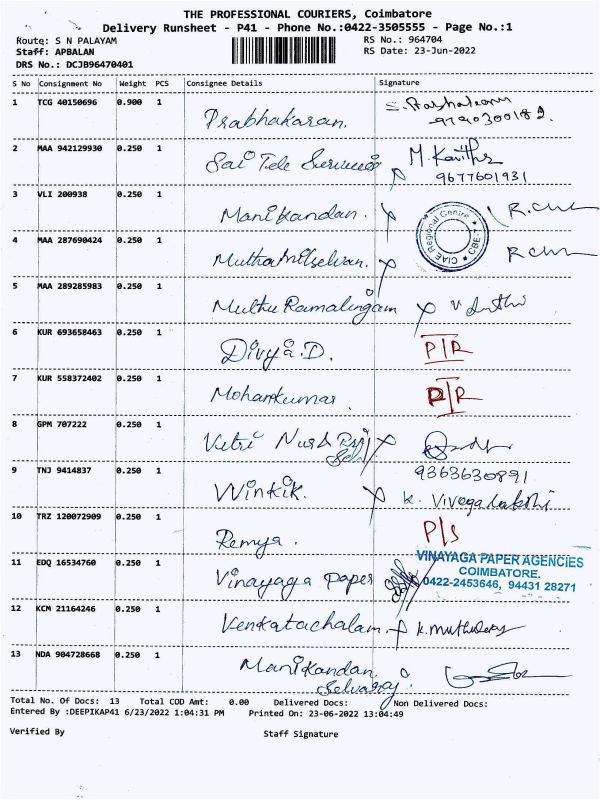 THE PROFESSIONAL COURIERS, Coimbatore
Delivery Runsheet - P41 - Phone No.:0422-3505555 - Page No.:1
Route: S N PALAYAM
RS No.: 964704
Staff: APBALAN
RS Date: 23-Jun-2022
DRS No.: DCJB96470401
S No Consignment No Weight PCS Consignee Details Signature
1 TCG 40150696 0.900 1 Prabhakaran.
9790300182.
2 MAA 942129930 0.250 1 Sai Tele Services M. Kavitha
9677601931
3 VLI 200938 0.250 1 Manikandan. R.
CIAE Regional Centre * CBE *
4 MAA 287690424 0.250 1 Muthamilselvan. R
5 MAA 289285983 0.250 1 Muthu Ramalingam
6 KUR 693658463 0.250 1 Divya.D. P/R
7 KUR 558372402 0.250 1 Mohankumar. P/R
8 GPM 707222 0.250 1 Vetri
9363630891
9 TNJ 9414837 0.250 1 Winkik. K. Vivegalakshi
10 TRZ 120072909 0.250 1 Remya. P/S
11 EDQ 16534760 0.250 1 Vinayaga Paper
VINAYAGA PAPER AGENCIES
COIMBATORE.
0422-2453646, 94431 28271
12 KCM 21164246 0.250 1 Venkatachalam.
13 NDA 904728668 0.250 1 Manikandan
Selvaraj.
Total No. Of Docs: 13 Total COD Amt: 0.00 Delivered Docs: Non Delivered Docs:
Entered By :DEEPIKAP41 6/23/2022 1:04:31 PM Printed On: 23-06-2022 13:04:49
Verified By Staff Signature